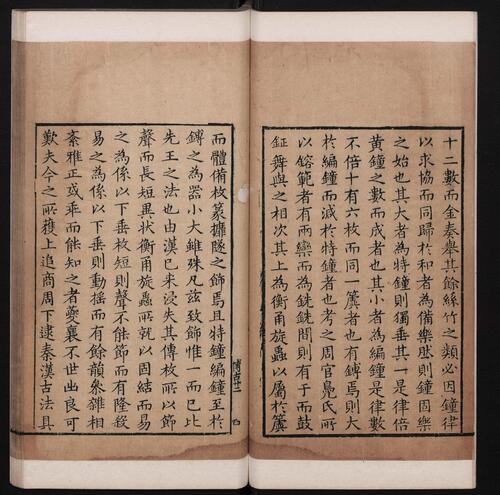 十二數而金奏舉其餘絲竹之類必因鐘律
以求協而同歸於和者為備樂肰則鐘固樂
之始也其大者為特鐘則獨垂其一是律倍
黃鐘之數而成者也其小者為編鐘是律數
不倍十有六枚而同一簴者也有鎛焉則大
於編鐘而減於特鐘者也考之周官鳧氏所
以鎔範者有兩欒而為銑銑間則有于而鼓
鉦舞與之相次其上為衡甬旋蟲以屬於簴
而體備枚篆攠隧之飾焉且特鐘編鐘至於
鎛之為器小大雖殊凡茲致飾惟一而已比
先王之法也由漢已來浸失其傳枚所以節
聲而長短異狀衡甬旋蟲所就以固結而易
之為係以下垂枚短則聲不能節而有隆殺
易之為係以下垂則動搖而有餘韻參雜相
紊雅正或乖而能知之者夔襄不世出良可
歎夫今之所獲上追商周下逮秦漢古法具
四